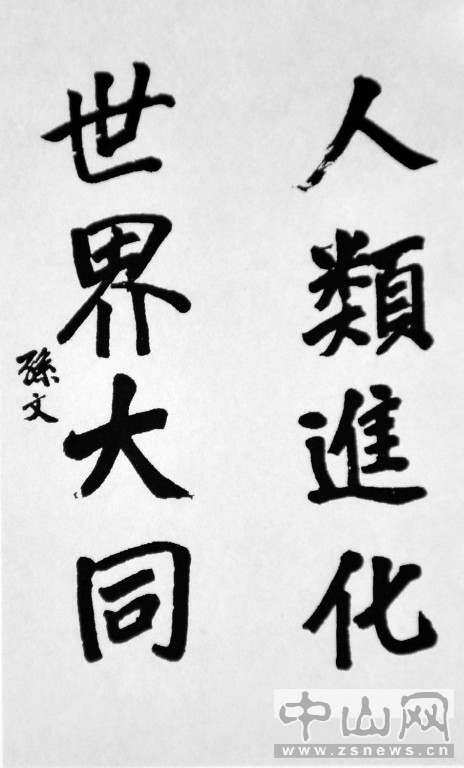 人類進化
世界大同
孫文
中山网
www.zsnews.cn